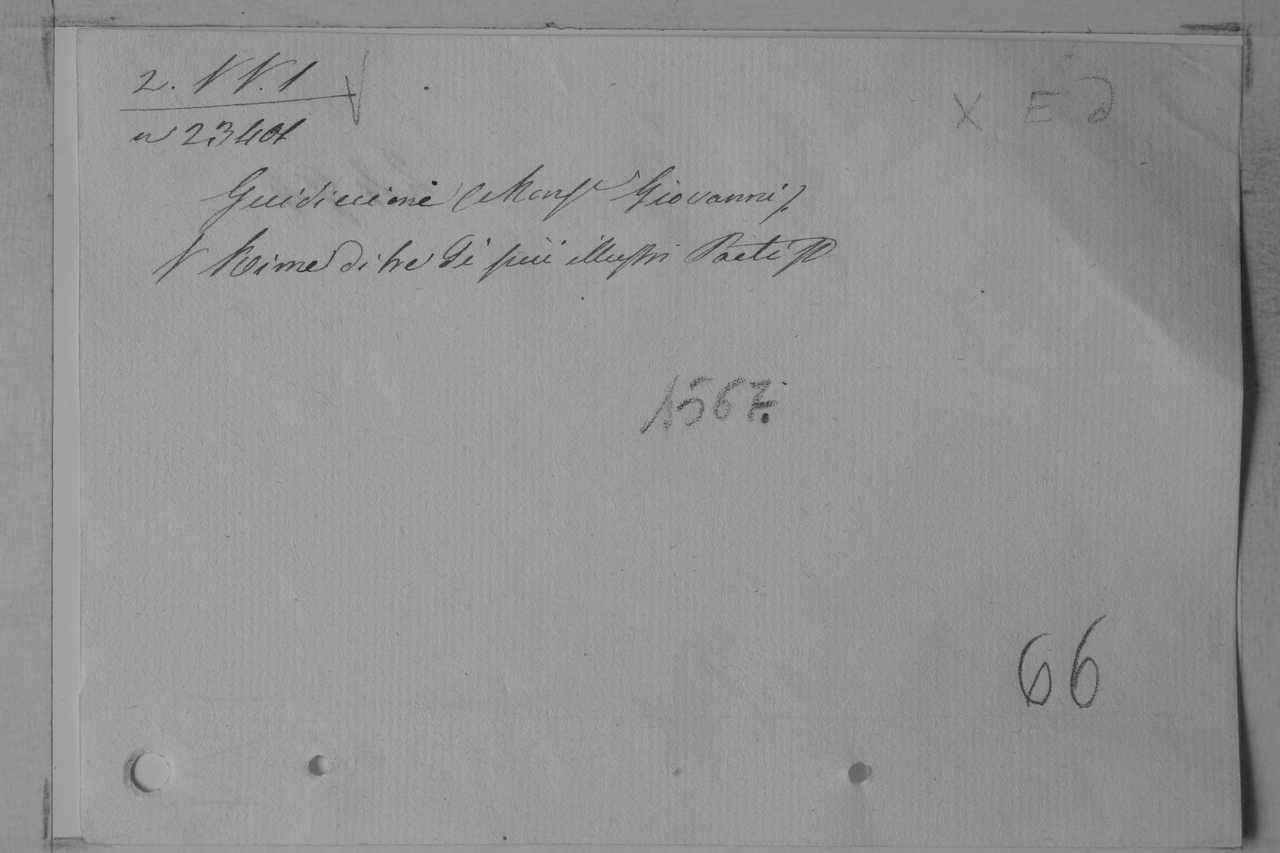 2. VV. 1
X E d
n 23401
Guidiccioni (Monsr Giovanni).
V Rime di tre di più illustri Poeti &
1567.
66